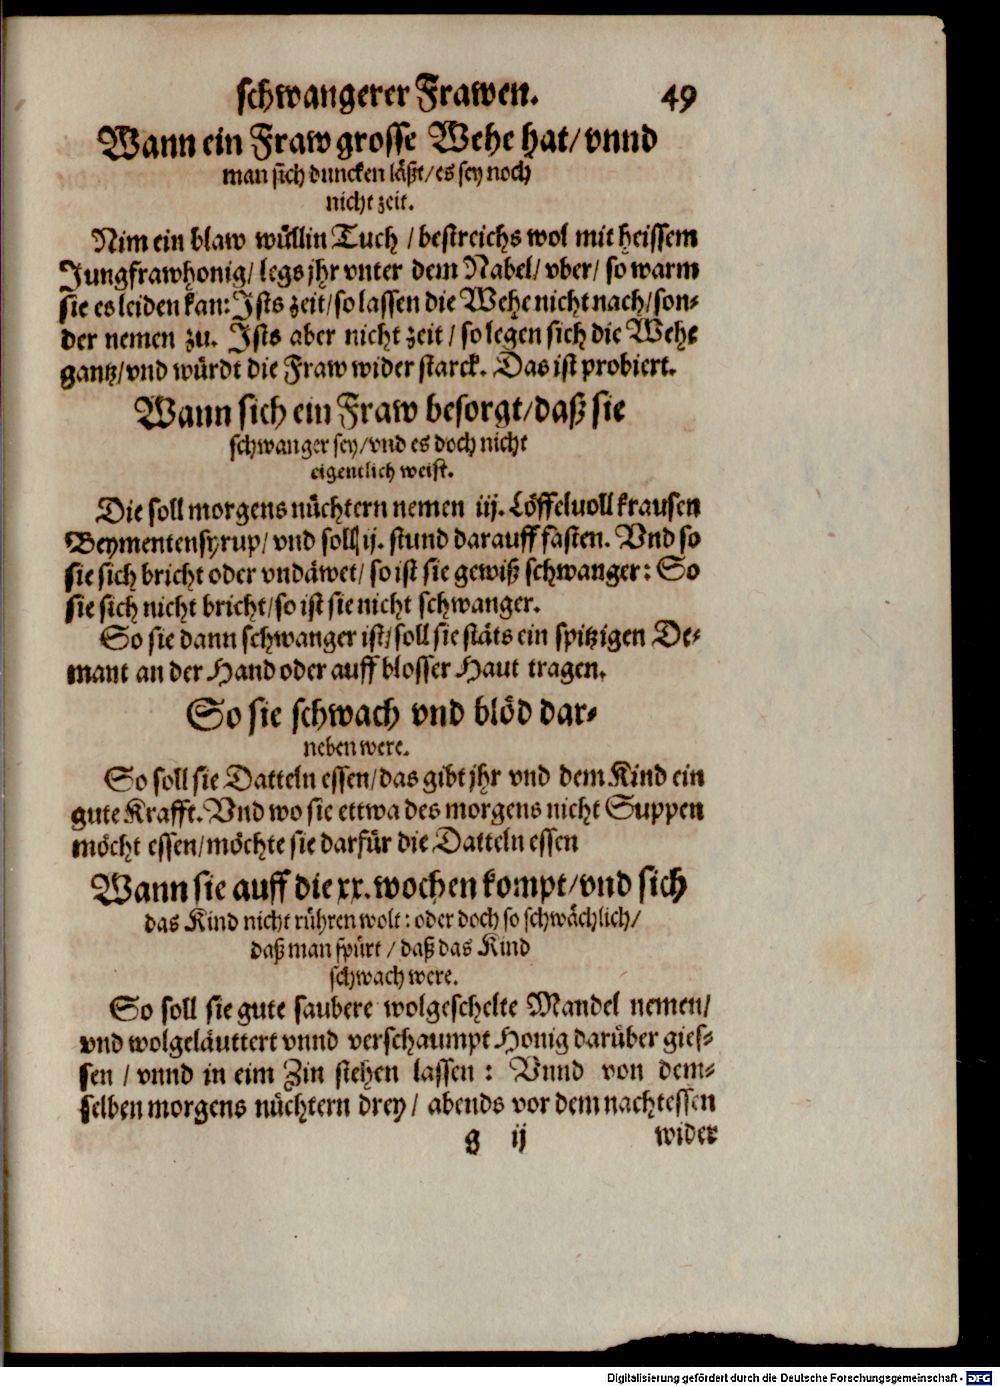 schwangerer Frawen. 49
Wann ein Fraw grosse Wehe hat/ vnnd
man sich duncken läßt/ es sey noch
nicht zeit.
Nim ein blaw wüllin Tuch / bestreichs wol mit heissem
Jungfrawhonig/ legs jhr vnter dem Nabel/ vber/ so warm
sie es leiden kan: Ists zeit/ so lassen die Wehe nicht nach/ son-
der nemen zu. Ists aber nicht zeit / so legen sich die Wehe
gantz/ vnd würdt die Fraw wider starck. Das ist probiert.
Wann sich ein Fraw besorgt/ daß sie
schwanger sey/ vnd es doch nicht
eigentlich weist.
Die soll morgens nüchtern nemen iij. Löffelvoll krausen
Beymentensyrup/ vnd soll ij. stund darauff fasten. Vnd so
sie sich bricht oder vndäwet/ so ist sie gewiß schwanger: So
sie sich nicht bricht/ so ist sie nicht schwanger.
So sie dann schwanger ist/ soll sie stäts ein spitzigen De-
mant an der Hand oder auff blosser Haut tragen.
So sie schwach vnd blöd dar-
neben were.
So soll sie Datteln essen/ das gibt jhr vnd dem Kind ein
gute Krafft. Vnd wo sie ettwa des morgens nicht Suppen
möcht essen/ möchte sie darfür die Datteln essen
Wann sie auff die xx. wochen kompt/ vnd sich
das Kind nicht rühren wolt: oder doch so schwächlich/
daß man spürt / daß das Kind
schwach were.
So soll sie gute saubere wolgeschelte Mandel nemen/
vnd wolgeläuttert vnnd verschaumpt Honig darüber gies-
sen / vnnd in eim Zin stehen lassen : Vnnd von dem-
selben morgens nüchtern drey/ abends vor dem nachtessen
g ij wider
Digitalisierung gefördert durch die Deutsche Forschungsgemeinschaft - DFG